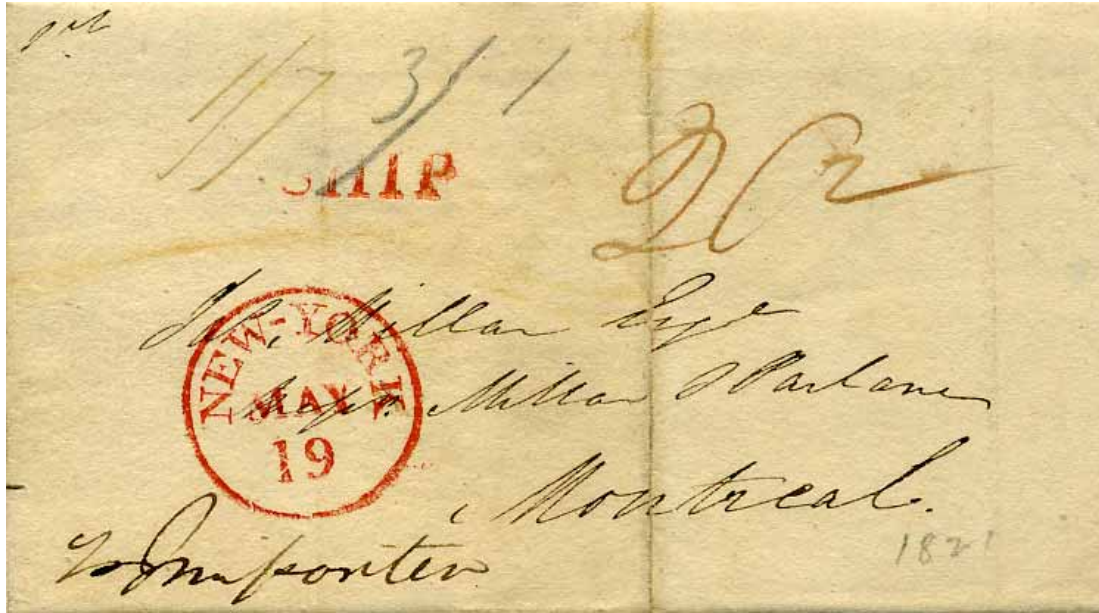 1/7 3/1
SHIP
Jas. Millar Esqr
Messrs. Millar Parlane
Montreal.
NEW-YORK
MAY
19
Importer
1821